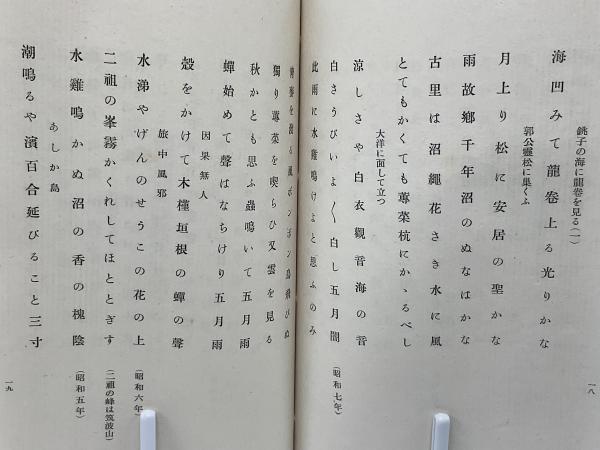 銚子の海に龍卷を見る(一)
海凹みて龍卷上る光りかな
郭公靈松に巢くふ
月上り松に安居の聖かな
雨故鄕千年沼のぬなはかな
古里は沼繩花さき水に風
とてもかくても蓴菜杭にかゝるべし
大洋に面して立つ
涼しさや白衣觀音海の音
白きうびいよ〳〵白し五月闇
此雨に水雞鳴けよと思ふのみ
(昭和七年)
一八
獨り蓴菜を喫らひ又雲を見る
秋かとも思ふ蟲鳴いて五月雨
蟬始めて聲はなちけり五月雨
因果無人
殼をかけて木槿垣根の蟬の聲
旅中風邪
水涕やげんのせうこの花の上
(昭和六年)
二祖の峯霧かくれしてほととぎす
(二祖の峰は筑波山)
水雞鳴かぬ沼の香の槐陰
(昭和五年)
あしか島
潮鳴るや濱百合延びること三寸
一九